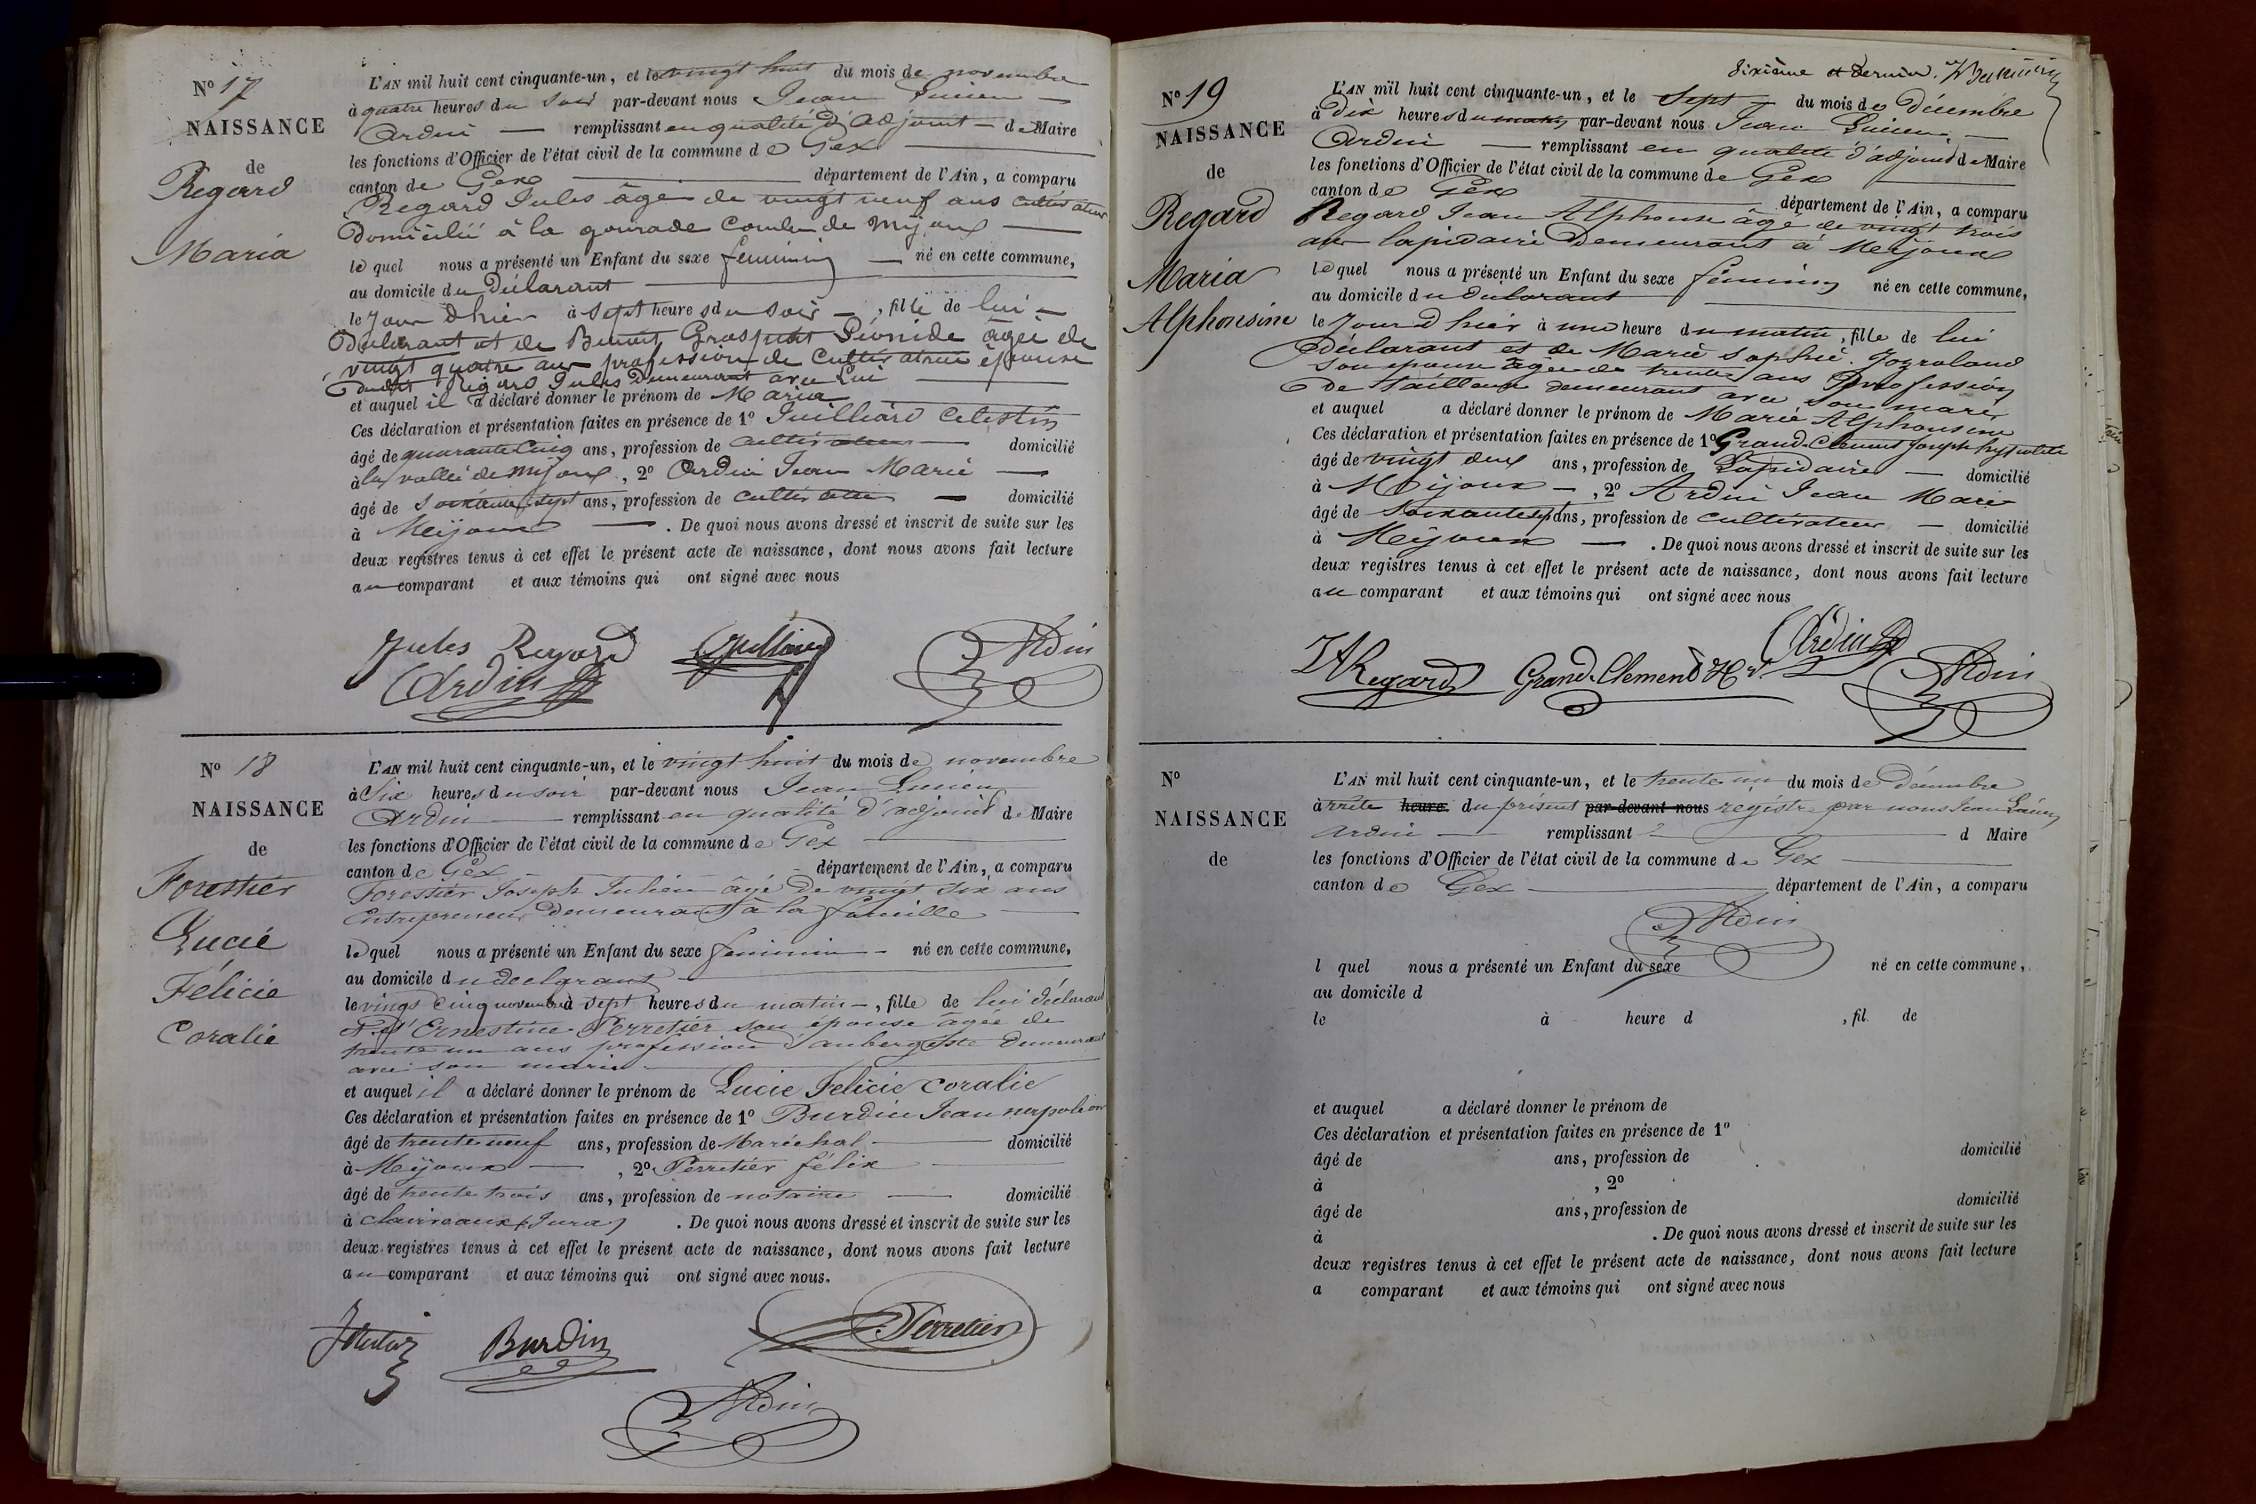 No 17
NAISSANCE
de
Regard
Maria
L'AN mil huit cent cinquante-un, et le vingt huit du mois de novembre
à quatre heures du soir par-devant nous Jean Lucien
Ardin remplissant en qualité d'adjoint de Maire
les fonctions d'Officier de l'état civil de la commune de Gex
canton de Gex département de l'Ain, a comparu
Regard Jules âgé de vingt neuf ans cultivateur
Domicilié à la de Mijoux
lequel nous a présenté un Enfant du sexe féminin né en cette commune,
au domicile du déclarant
le jour d'hier à sept heures du soir, fille de lui
Déclarant et de Benoit Léonide âgée de
vingt quatre ans profession de cultivatrice épouse
dudit Regard Jules demeurant avec lui
et auquel il a déclaré donner le prénom de Maria
Ces déclaration et présentation faites en présence de 1º Juilliard Celestin
âgé de quarante cinq ans, profession de cultivateur domicilié
à la vallée de mijoux, 2º Ardin Jean Marie
âgé de soixante sept ans, profession de cultivateur domicilié
à Meijoux. De quoi nous avons dressé et inscrit de suite sur les
deux registres tenus à cet effet le présent acte de naissance, dont nous avons fait lecture
au comparant et aux témoins qui ont signé avec nous
Jules Regard Juilliard Ardin
Ardin
No 18
NAISSANCE
de
Forestier
Lucie
Félicie
Coralie
L'AN mil huit cent cinquante-un, et le vingt huit du mois de novembre
à Six heures du soir par-devant nous Jean Lucien
Ardin remplissant en qualité d'adjoint de Maire
les fonctions d'Officier de l'état civil de la commune de Gex
canton de Gex département de l'Ain, a comparu
Forestier Joseph Julien âgé de vingt six ans
Entrepreneur demeurant à la faucille
lequel nous a présenté un Enfant du sexe feminin né en cette commune,
au domicile du declarant
le vingt cinq novembre à sept heures du matin, fille de lui déclarant
et d'Ernestine Perretier son épouse âgée de
trente un ans profession d'aubergiste demeurant
avec son mari
et auquel il a déclaré donner le prénom de Lucie Felicie Coralie
Ces déclaration et présentation faites en présence de 1º Burdin Jean
âgé de trente neuf ans, profession de Maréchal domicilié
à Meijoux, 2º Perretier félix
âgé de trente trois ans, profession de notaire domicilié
à clairvaux Jura. De quoi nous avons dressé et inscrit de suite sur les
deux registres tenus à cet effet le présent acte de naissance, dont nous avons fait lecture
au comparant et aux témoins qui ont signé avec nous.
Burdin Perretier
Ardin
Sixième et dernier.
No 19
NAISSANCE
de
Regard
Maria
Alphonsine
L'AN mil huit cent cinquante-un, et le Sept du mois de Décembre
à Dix heures du matin par-devant nous Jean Lucien
Ardin remplissant en qualité d'adjoint de Maire
les fonctions d'Officier de l'état civil de la commune de Gex
canton de Gex département de l'Ain, a comparu
Regard Jean Alphonse âgé de vingt trois
ans lapidaire Demeurant à Meijoux
lequel nous a présenté un Enfant du sexe féminin né en cette commune,
au domicile du declarant
le Jour d'hier à une heure du matin, fille de lui
déclarant et de Marie Sophie
son epouse âgée de trente ans Profession
de tailleuse demeurant avec son mari
et auquel a déclaré donner le prénom de Maria Alphonsine
Ces déclaration et présentation faites en présence de 1º Grand-Clement Joseph hyppolite
âgé de vingt deux ans, profession de Lapidaire domicilié
à Mijoux, 2º Ardin Jean Marie
âgé de soixante sept ans, profession de cultivateur domicilié
à Meijoux. De quoi nous avons dressé et inscrit de suite sur les
deux registres tenus à cet effet le présent acte de naissance, dont nous avons fait lecture
au comparant et aux témoins qui ont signé avec nous
Ardin
JA Regard Grand-Clement Ardin
No
NAISSANCE
de
L'AN mil huit cent cinquante-un, et le trente un du mois de Décembre
arrêté heure du présent par-devant nous registre par nous Jean Lucien
Ardin remplissant d Maire
les fonctions d'Officier de l'état civil de la commune de Gex
canton de Gex département de l'Ain, a comparu
Ardin
l quel nous a présenté un Enfant du sexe né en cette commune,
au domicile d
le à heure d , fil de
et auquel a déclaré donner le prénom de
Ces déclaration et présentation faites en présence de 1º
âgé de ans, profession de domicilié
à , 2º
âgé de ans, profession de domicilié
à . De quoi nous avons dressé et inscrit de suite sur les
deux registres tenus à cet effet le présent acte de naissance, dont nous avons fait lecture
a comparant et aux témoins qui ont signé avec nous